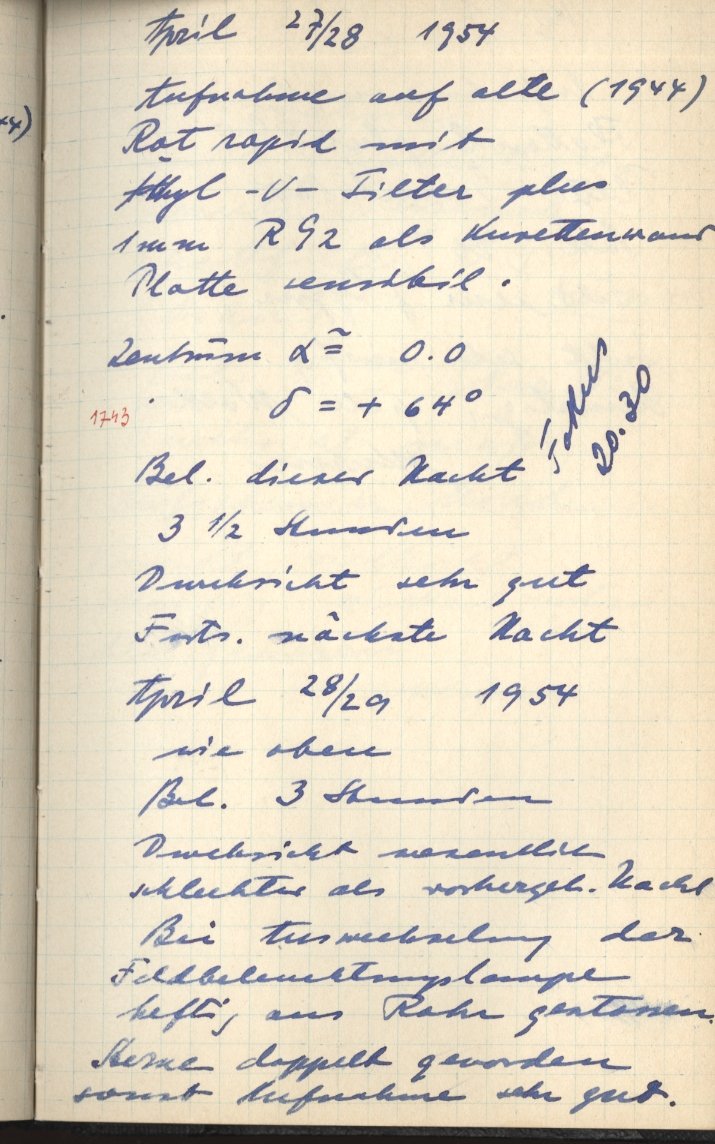 44)
April 27/28 1954
Aufnahme auf alte (1944)
Rot rapid mit
Äthyl -V- Filter plus
1mm RG2 als Kuvettenwand
Platte sensibil.
Zentrum α ≅ 0.0
1743 δ = + 64°
Fokus
20.30
Bel. dieser Nacht
3 1/2 Stunden
Durchsicht sehr gut
Forts. nächste Nacht
April 28/29 1954
wie oben
Bel. 3 Stunden
Durchsicht wesentlich
schlechter als vorhergeh. Nacht
Bei Auswechselung der
Feldbeleuchtungslampe
heftig ans Rohr gestossen.
Sterne doppelt geworden
sonst Aufnahme sehr gut.